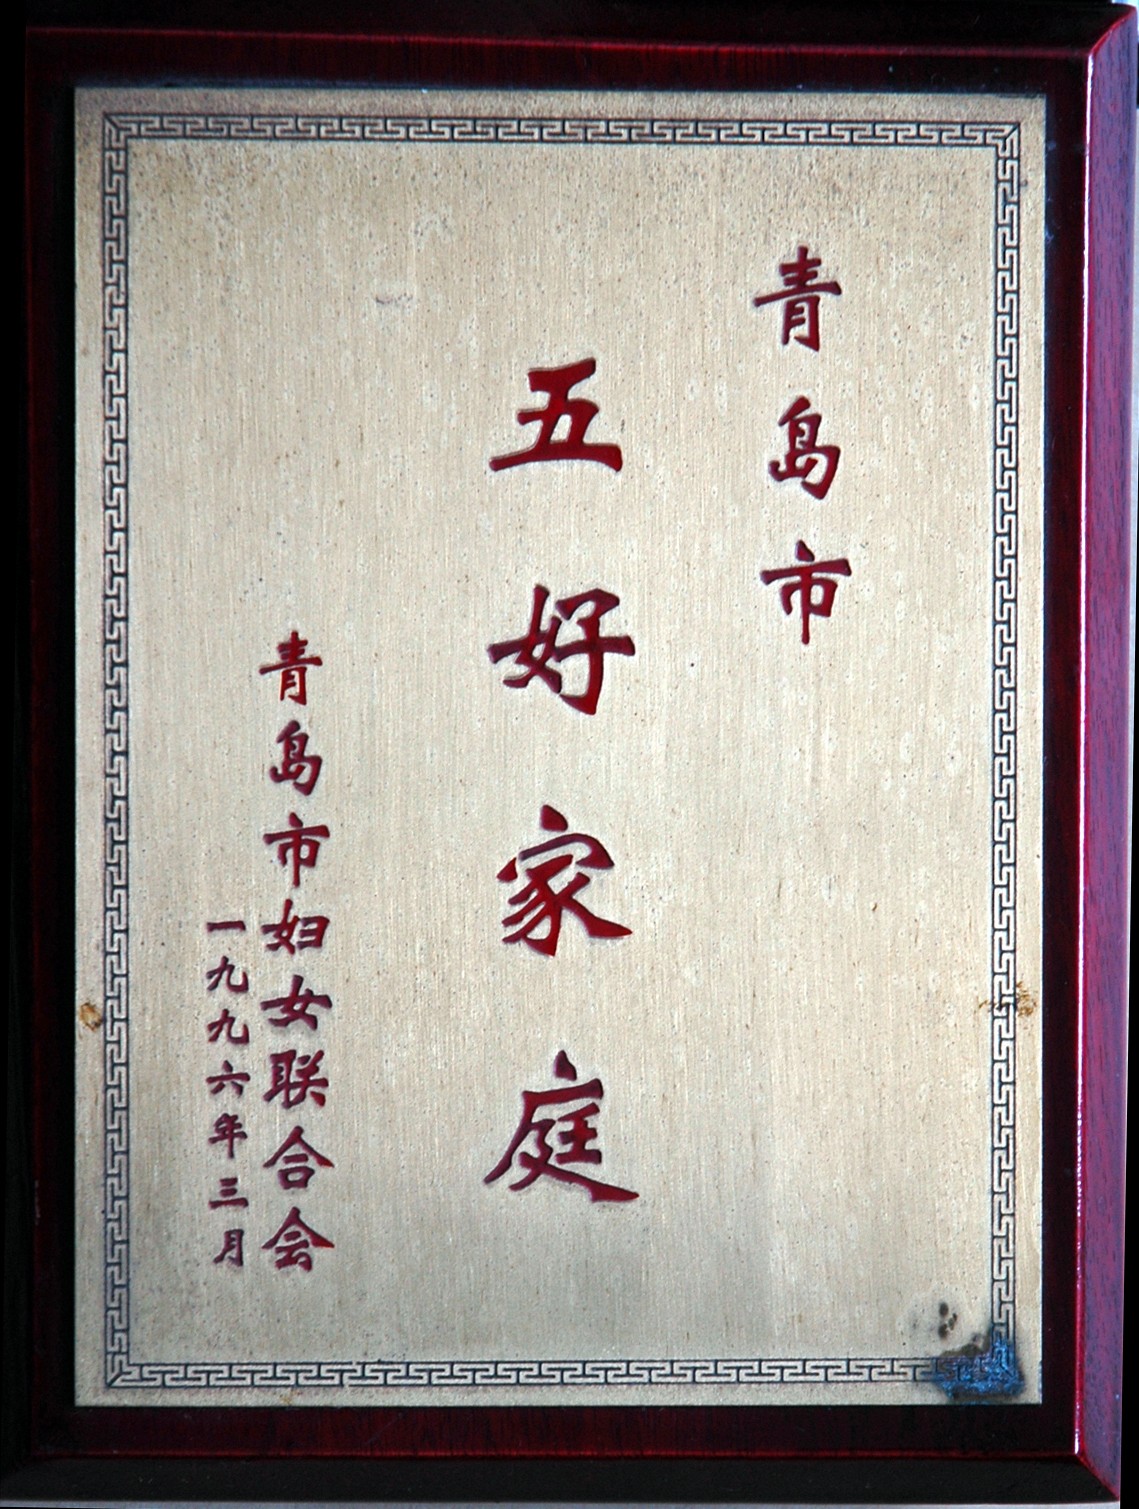 青岛市
五好家庭
青岛市妇女联合会
一九九六年三月